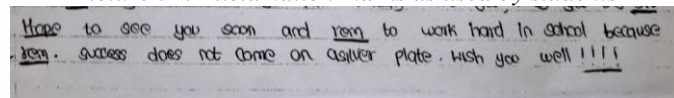 Hope to see you soon and rem to work hard in school because
rem. success does not come on asilver plate. Wish yoo well !!!!